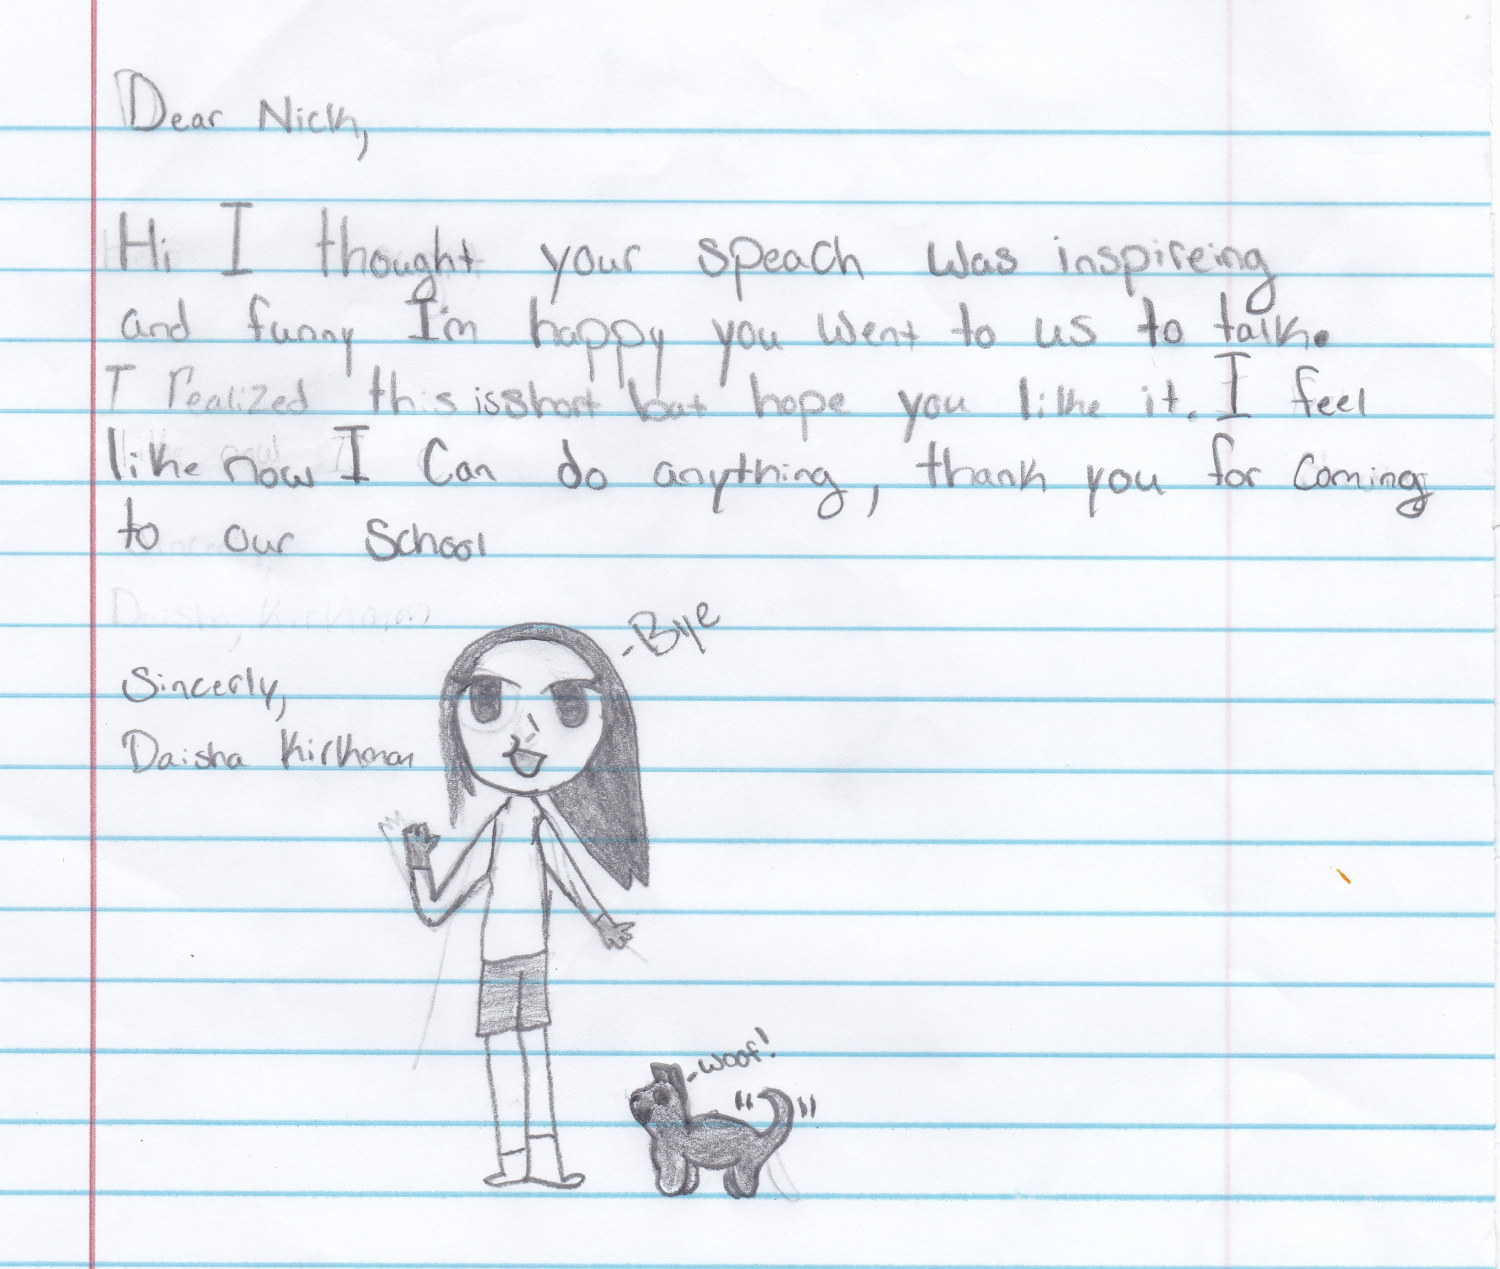 Dear Nick,
Hi I thought your speach was inspireing
and funny I'm happy you went to us to talk.
I realized this is short but hope you like it. I feel
like now I can do anything, thank you for coming
to our school
-Bye
Sincerly,
Daisha Kirkman
-woof!